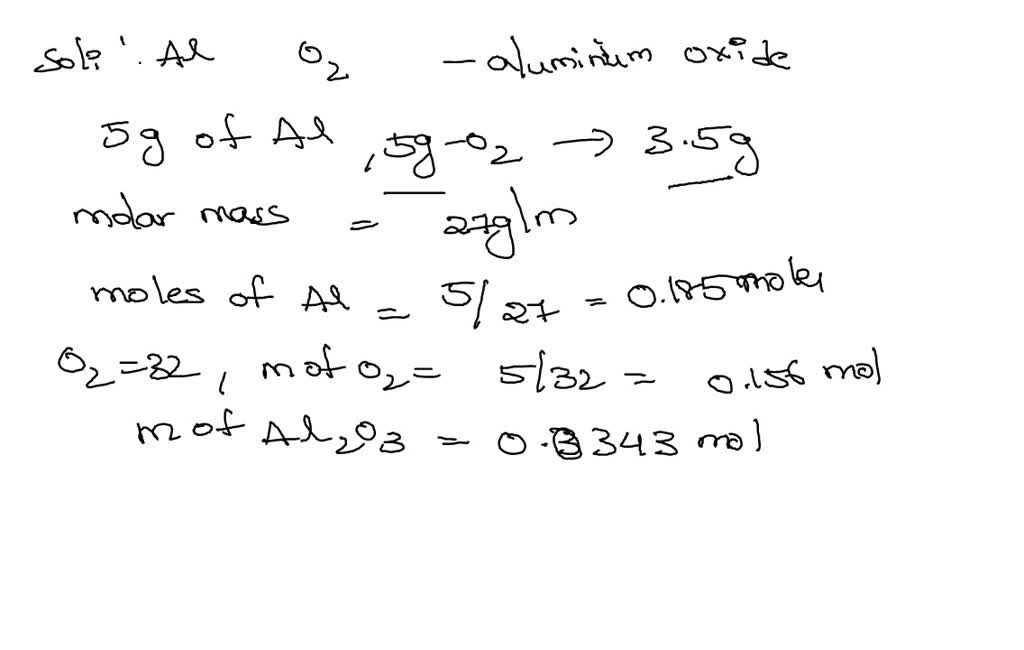 Soln: Al O2 – aluminium oxide
5g of Al, 5g-O2 → 3.5g
molar mass = 27g/m
moles of Al = 5/27 = 0.185 moles
O2=32, m of O2 = 5/32 = 0.156 mol
m of Al2O3 = 0.3343 mol